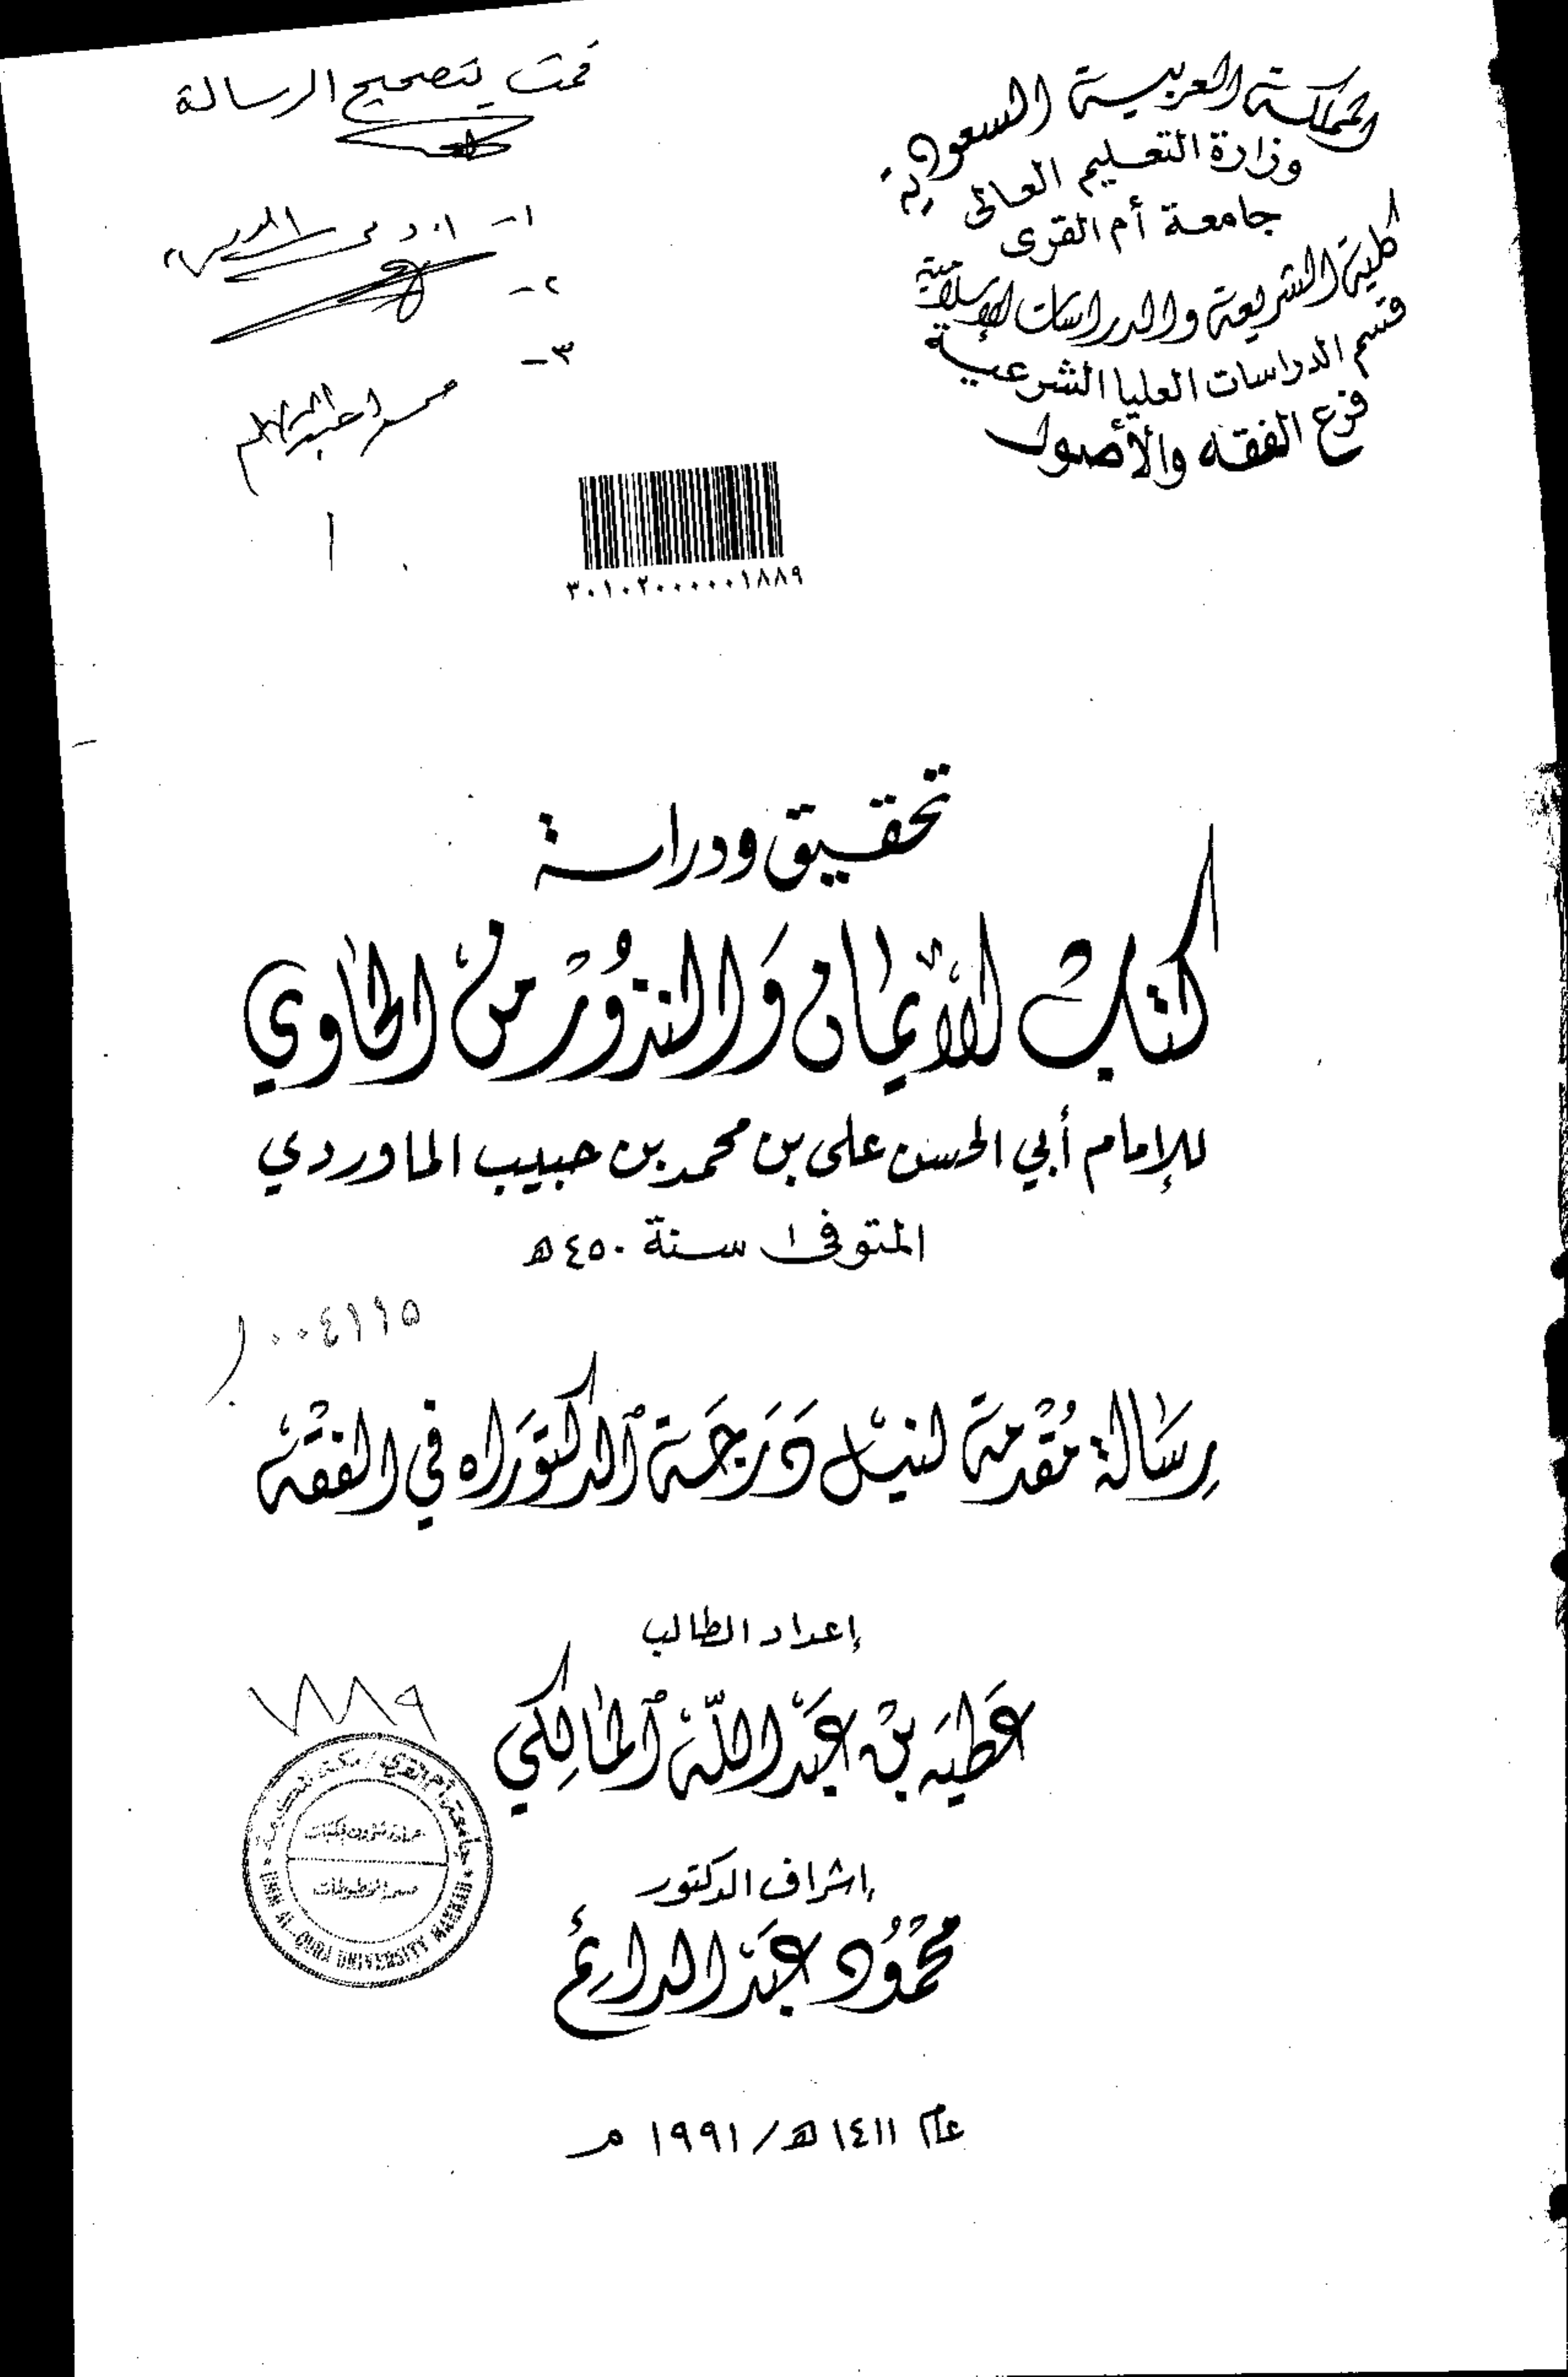 المملكة العربية السعودية
وزارة التعليم العالى
جامعة أم القرى
كلية الشريعة والدراسات الإسلامية
قسم الدراسات العليا الشرعية
فرع الفقه والأصول
قمت بتصحيح الرسالة
١-
٢-
٣-
٣٠١٠٢٠٠٠٠٠١٨٨٩
تحقيق ودراسة
كتاب الأيمان والنذور من الحاوي
للإمام أبي الحسن على بن محمد بن حبيب الماوردي
المتوفى سنة ٤٥٠ هـ
٠٠٤١١٥
رسالة مقدمة لنيل درجة الدكتوراه في الفقه
إعداد الطالب
عطيه بن عبد الله المالكي
١٨٨٩
جامعة أم القرى / مكة المكرمة
UMM AL-QURA UNIVERSITY MAKKAH
إشراف الدكتور
محمود عبد الدائم
عام ١٤١١ هـ / ١٩٩١ م